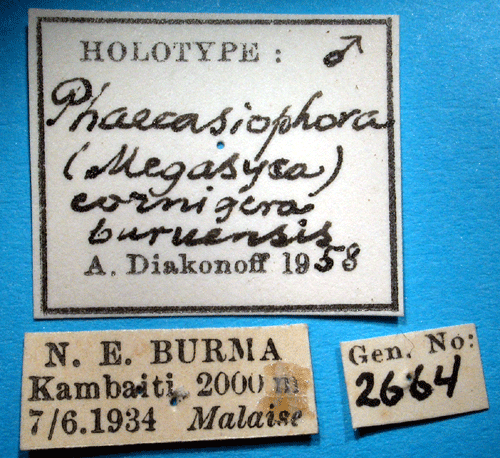 HOLOTYPE : ♂
Phaecasiophora
(Megasyca)
cornigera
buruensis
A. Diakonoff 1958
N. E. BURMA
Kambaiti, 2000 m
7/6.1934 Malaise
Gen. No:
2664